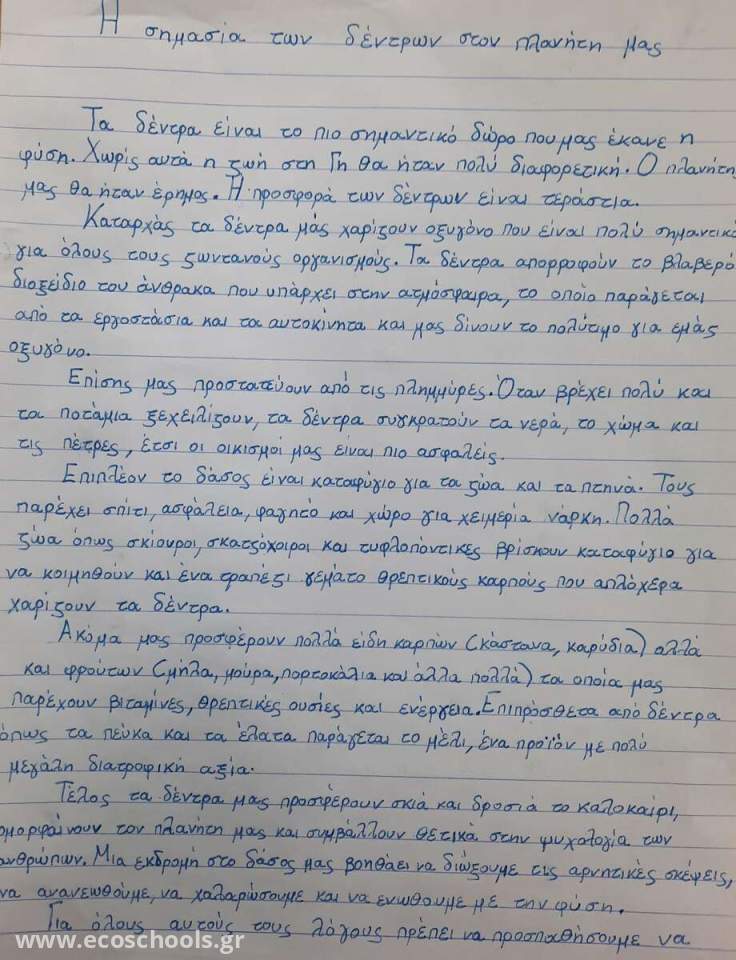 Η σημασία των δέντρων στον πλανήτη μας
Τα δέντρα είναι το πιο σημαντικό δώρο που μας έκανε η
φύση. Χωρίς αυτά η ζωή στη Γη θα ήταν πολύ διαφορετική. Ο πλανήτης
μας θα ήταν έρημος. Η προσφορά των δέντρων είναι τεράστια.
Καταρχάς τα δέντρα μάς χαρίζουν οξυγόνο που είναι πολύ σημαντικό
για όλους τους ζωντανούς οργανισμούς. Τα δέντρα απορροφούν το βλαβερό
διοξείδιο του άνθρακα που υπάρχει στην ατμόσφαιρα, το οποίο παράγεται
από τα εργοστάσια και τα αυτοκίνητα και μας δίνουν το πολύτιμο για εμάς
οξυγόνο.
Επίσης μας προστατεύουν από τις πλημμύρες. Όταν βρέχει πολύ και
τα ποτάμια ξεχειλίζουν, τα δέντρα συγκρατούν τα νερά, το χώμα και
τις πέτρες, έτσι οι οικισμοί μας είναι πιο ασφαλείς.
Επιπλέον το δάσος είναι καταφύγιο για τα ζώα και τα πτηνά. Τους
παρέχει σπίτι, ασφάλεια, φαγητό και χώρο για χειμερία νάρκη. Πολλά
ζώα όπως σκίουροι, σκατζόχοιροι και τυφλοπόντικες βρίσκουν καταφύγιο για
να κοιμηθούν και ένα τραπέζι γεμάτο θρεπτικούς καρπούς που απλόχερα
χαρίζουν τα δέντρα.
Ακόμα μας προσφέρουν πολλά είδη καρπών (κάστανα, καρύδια) αλλά
και φρούτων (μήλα, μούρα, πορτοκάλια και άλλα πολλά) τα οποία μας
παρέχουν βιταμίνες, θρεπτικές ουσίες και ενέργεια. Επιπρόσθετα από δέντρα
όπως τα πεύκα και τα έλατα παράγεται το μέλι, ένα προϊόν με πολύ
μεγάλη διατροφική αξία.
Τέλος τα δέντρα μας προσφέρουν σκιά και δροσιά το καλοκαίρι,
ομορφαίνουν τον πλανήτη μας και συμβάλλουν θετικά στην ψυχολογία των
ανθρώπων. Μια εκδρομή στο δάσος μας βοηθάει να διώξουμε τις αρνητικές σκέψεις,
να ανανεωθούμε, να χαλαρώσουμε και να ενωθουμε με την φύση.
Για όλους αυτούς τους λόγους πρέπει να προσπαθήσουμε να
www.ecoschools.gr